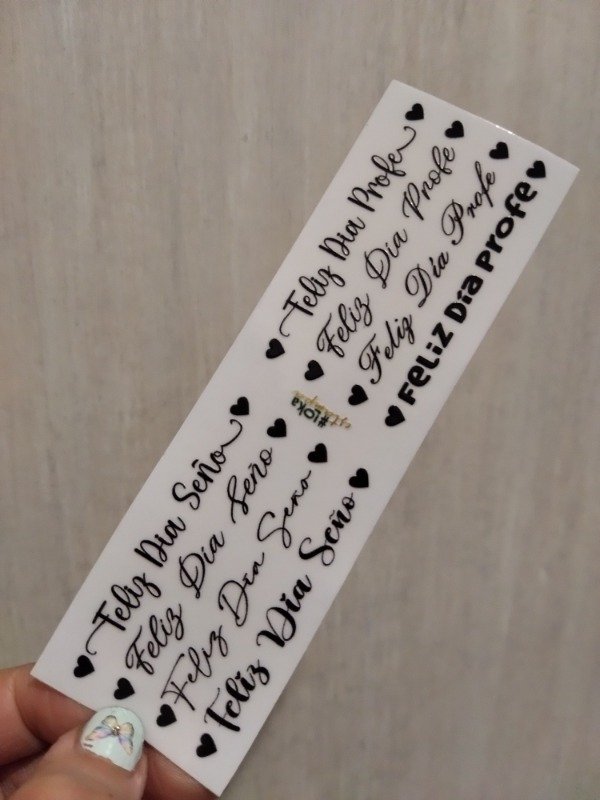 Feliz Dia Profe
Feliz Dia Profe
Feliz Día Profe
FeLiZ Día PROFe
#LOKa
Feliz Dia Seño
Feliz Dia Seño
Feliz Dia Seno
Feliz Dia Seño